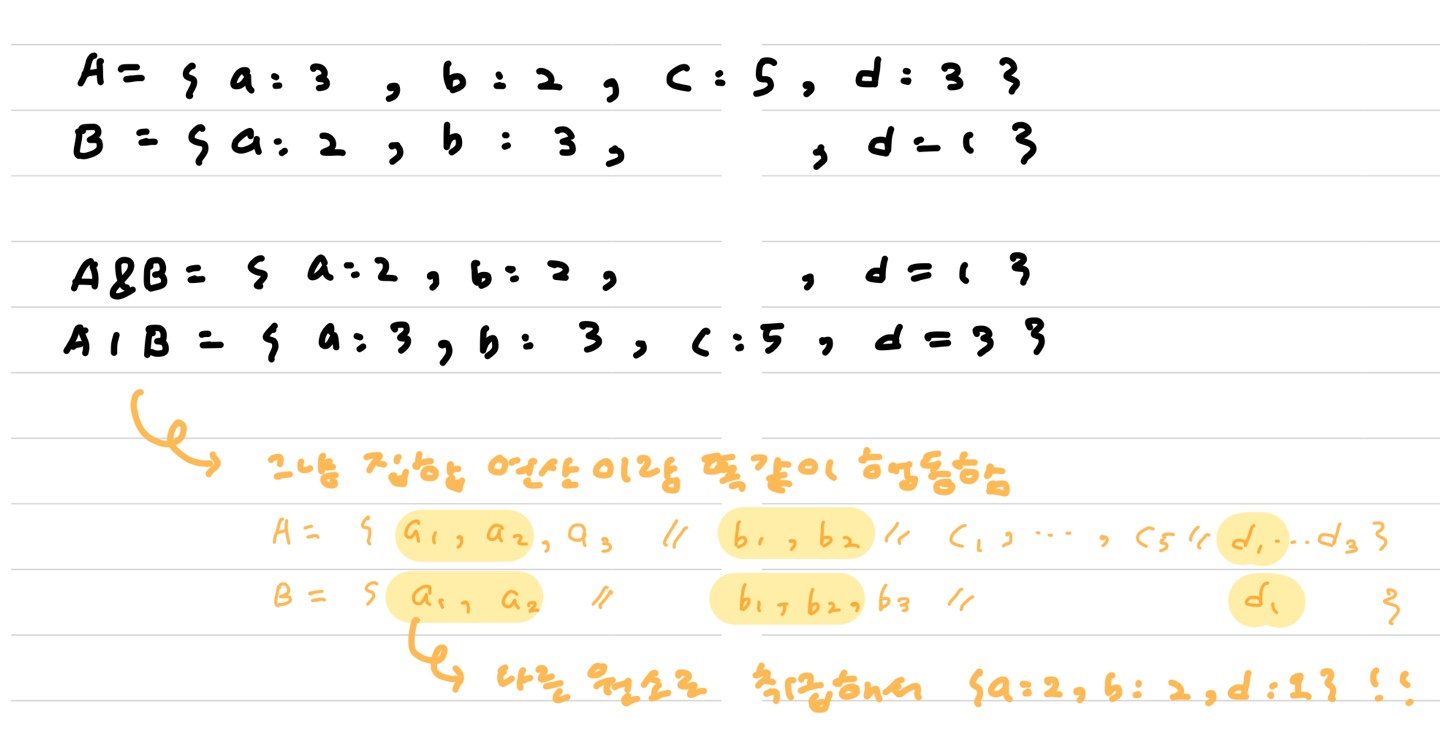 A = { a : 3 , b : 2 , c : 5 , d : 3 }
B = { a : 2 , b : 3 , , d = 1 }
A&B = { a : 2 , b : 2 , , d = 1 }
A | B = { a : 3 , b : 3 , c : 5 , d = 3 }
그냥 집합 연산이랑 똑같이 행동함
A = { a₁, a₂, a₃ // b₁, b₂ // c₁, ⋯, c₅ // d₁⋯d₃ }
B = { a₁, a₂ // b₁, b₂, b₃ // d₁ }
다른 원소로 취급해서 {a:2, b:2, d:1} !!